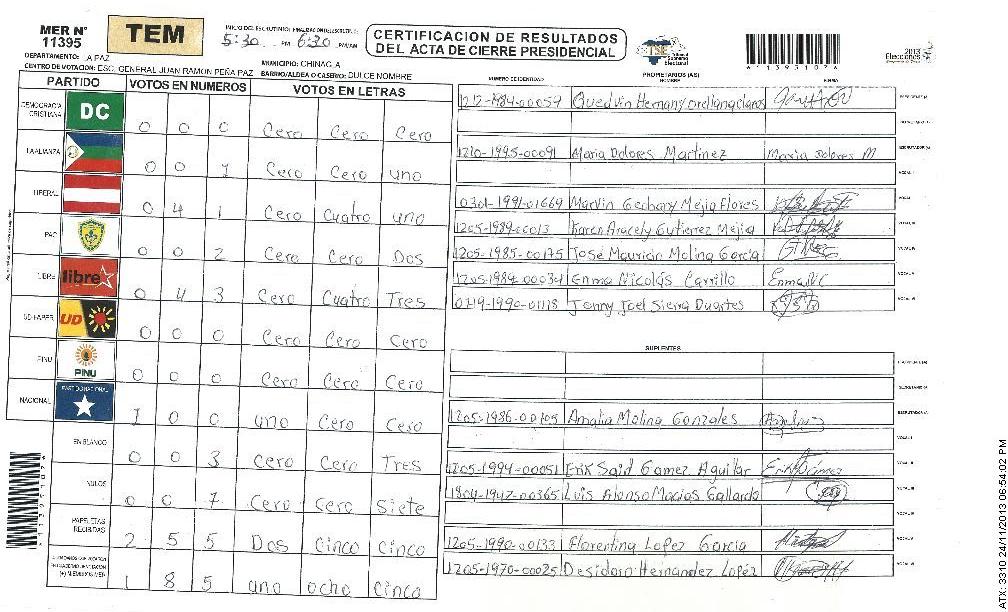 MER Nº
11395
TEM
INICIO DEL ESCRUTINIO: FINALIZACION DEL ESCRUTINIO:
5:30 PM 6:30 PM/AM
CERTIFICACION DE RESULTADOS
DEL ACTA DE CIERRE PRESIDENCIAL
TSE Tribunal Supremo Electoral
2013
Elecciones
DEPARTAMENTO: LA PAZ
MUNICIPIO: CHINACLA
CENTRO DE VOTACION: ESC. GENERAL JUAN RAMON PEÑA PAZ BARRIO/ALDEA O CASERIO: DULCE NOMBRE
PARTIDO VOTOS EN NUMEROS VOTOS EN LETRAS
DEMOCRACIA CRISTIANA DC 0 0 0 Cero Cero Cero
LA ALIANZA 0 0 1 Cero Cero uno
LIBERAL 0 4 1 Cero Cuatro uno
PAC 0 0 2 Cero Cero Dos
LIBRE libre 0 4 3 Cero Cuatro Tres
UD-FAPER UD 0 0 0 Cero Cero Cero
PINU PINU 0 0 0 Cero Cero Cero
NACIONAL PARTIDO NACIONAL 1 0 0 uno Cero Cero
EN BLANCO 0 0 3 Cero Cero Tres
NULOS 0 0 7 Cero Cero Siete
PAPELETAS RECIBIDAS 2 5 5 Dos Cinco Cinco
(+) MIEMBROS MER 1 8 5 uno ocho Cinco
NUMERO DE IDENTIDAD PROPIETARIOS (AS) NOMBRE FIRMA
1212-1984-00059 Quedvin Hernany orellana claros
1210-1995-00091 Maria Dolores Martinez Maria Dolores M
0301-1991-01669 Marvin Geobany Mejia Flores
1205-1989-00013 Karen Aracely Gutierrez Mejia
1205-1985-00175 José Mauricio Molina Garcia
1205-1984-00034 Enma Nicolás Carrillo Enma N.C
0319-1990-01118 Jonny Joel Sierra Duartes
SUPLENTES
1205-1986-00105 Amalia Molina Gonzales
1205-1994-00051 Erik Said Gamez Aguilar
1804-1947-00365 Luis Alonso Macias Gallardo
1205-1990-00133 Florentina Lopez Garcia
1205-1970-00025 Desidoro Hernandez Lopéz
ATX: 3310 24/11/2013 06:54:02 PM